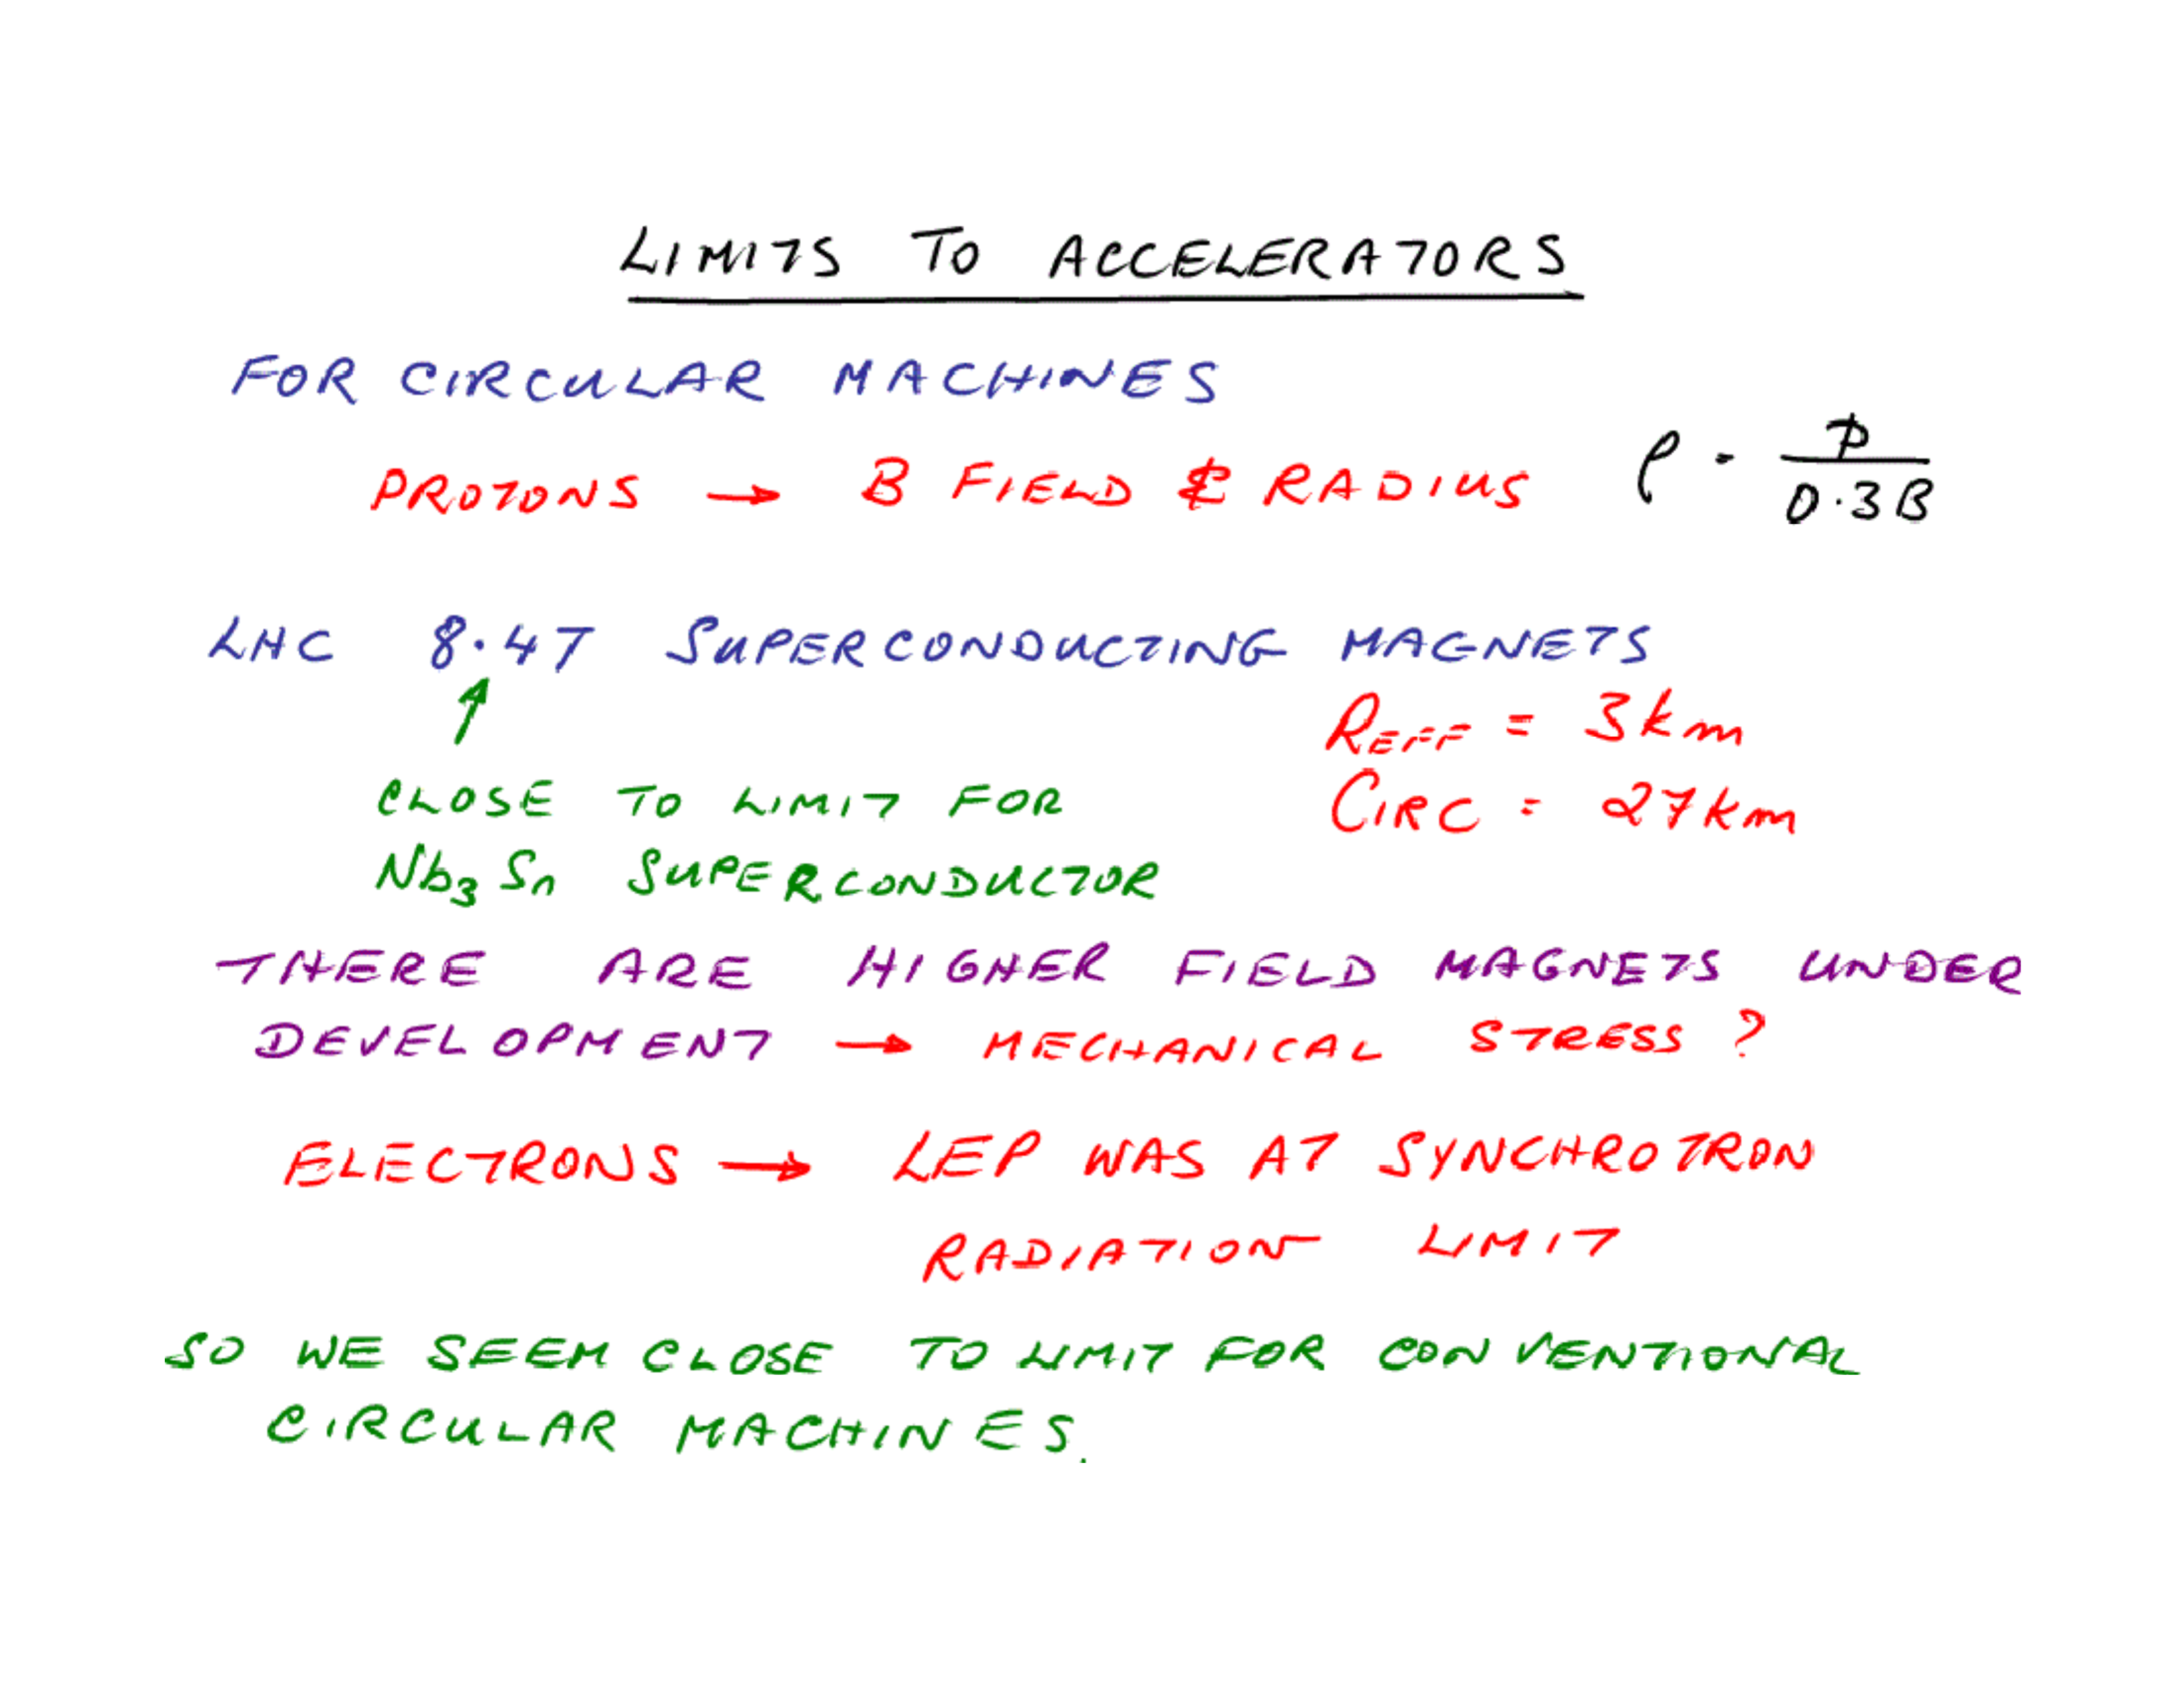 LIMITS TO ACCELERATORS
FOR CIRCULAR MACHINES
PROTONS → B FIELD & RADIUS
ρ = p / 0.3B
LHC 8.4T SUPERCONDUCTING MAGNETS
↑
REFF = 3km
CLOSE TO LIMIT FOR
CIRC = 27km
Nb₃Sn SUPERCONDUCTOR
THERE ARE HIGHER FIELD MAGNETS UNDER
DEVELOPMENT → MECHANICAL STRESS?
ELECTRONS → LEP WAS AT SYNCHROTRON
RADIATION LIMIT
SO WE SEEM CLOSE TO LIMIT FOR CONVENTIONAL
CIRCULAR MACHINES.